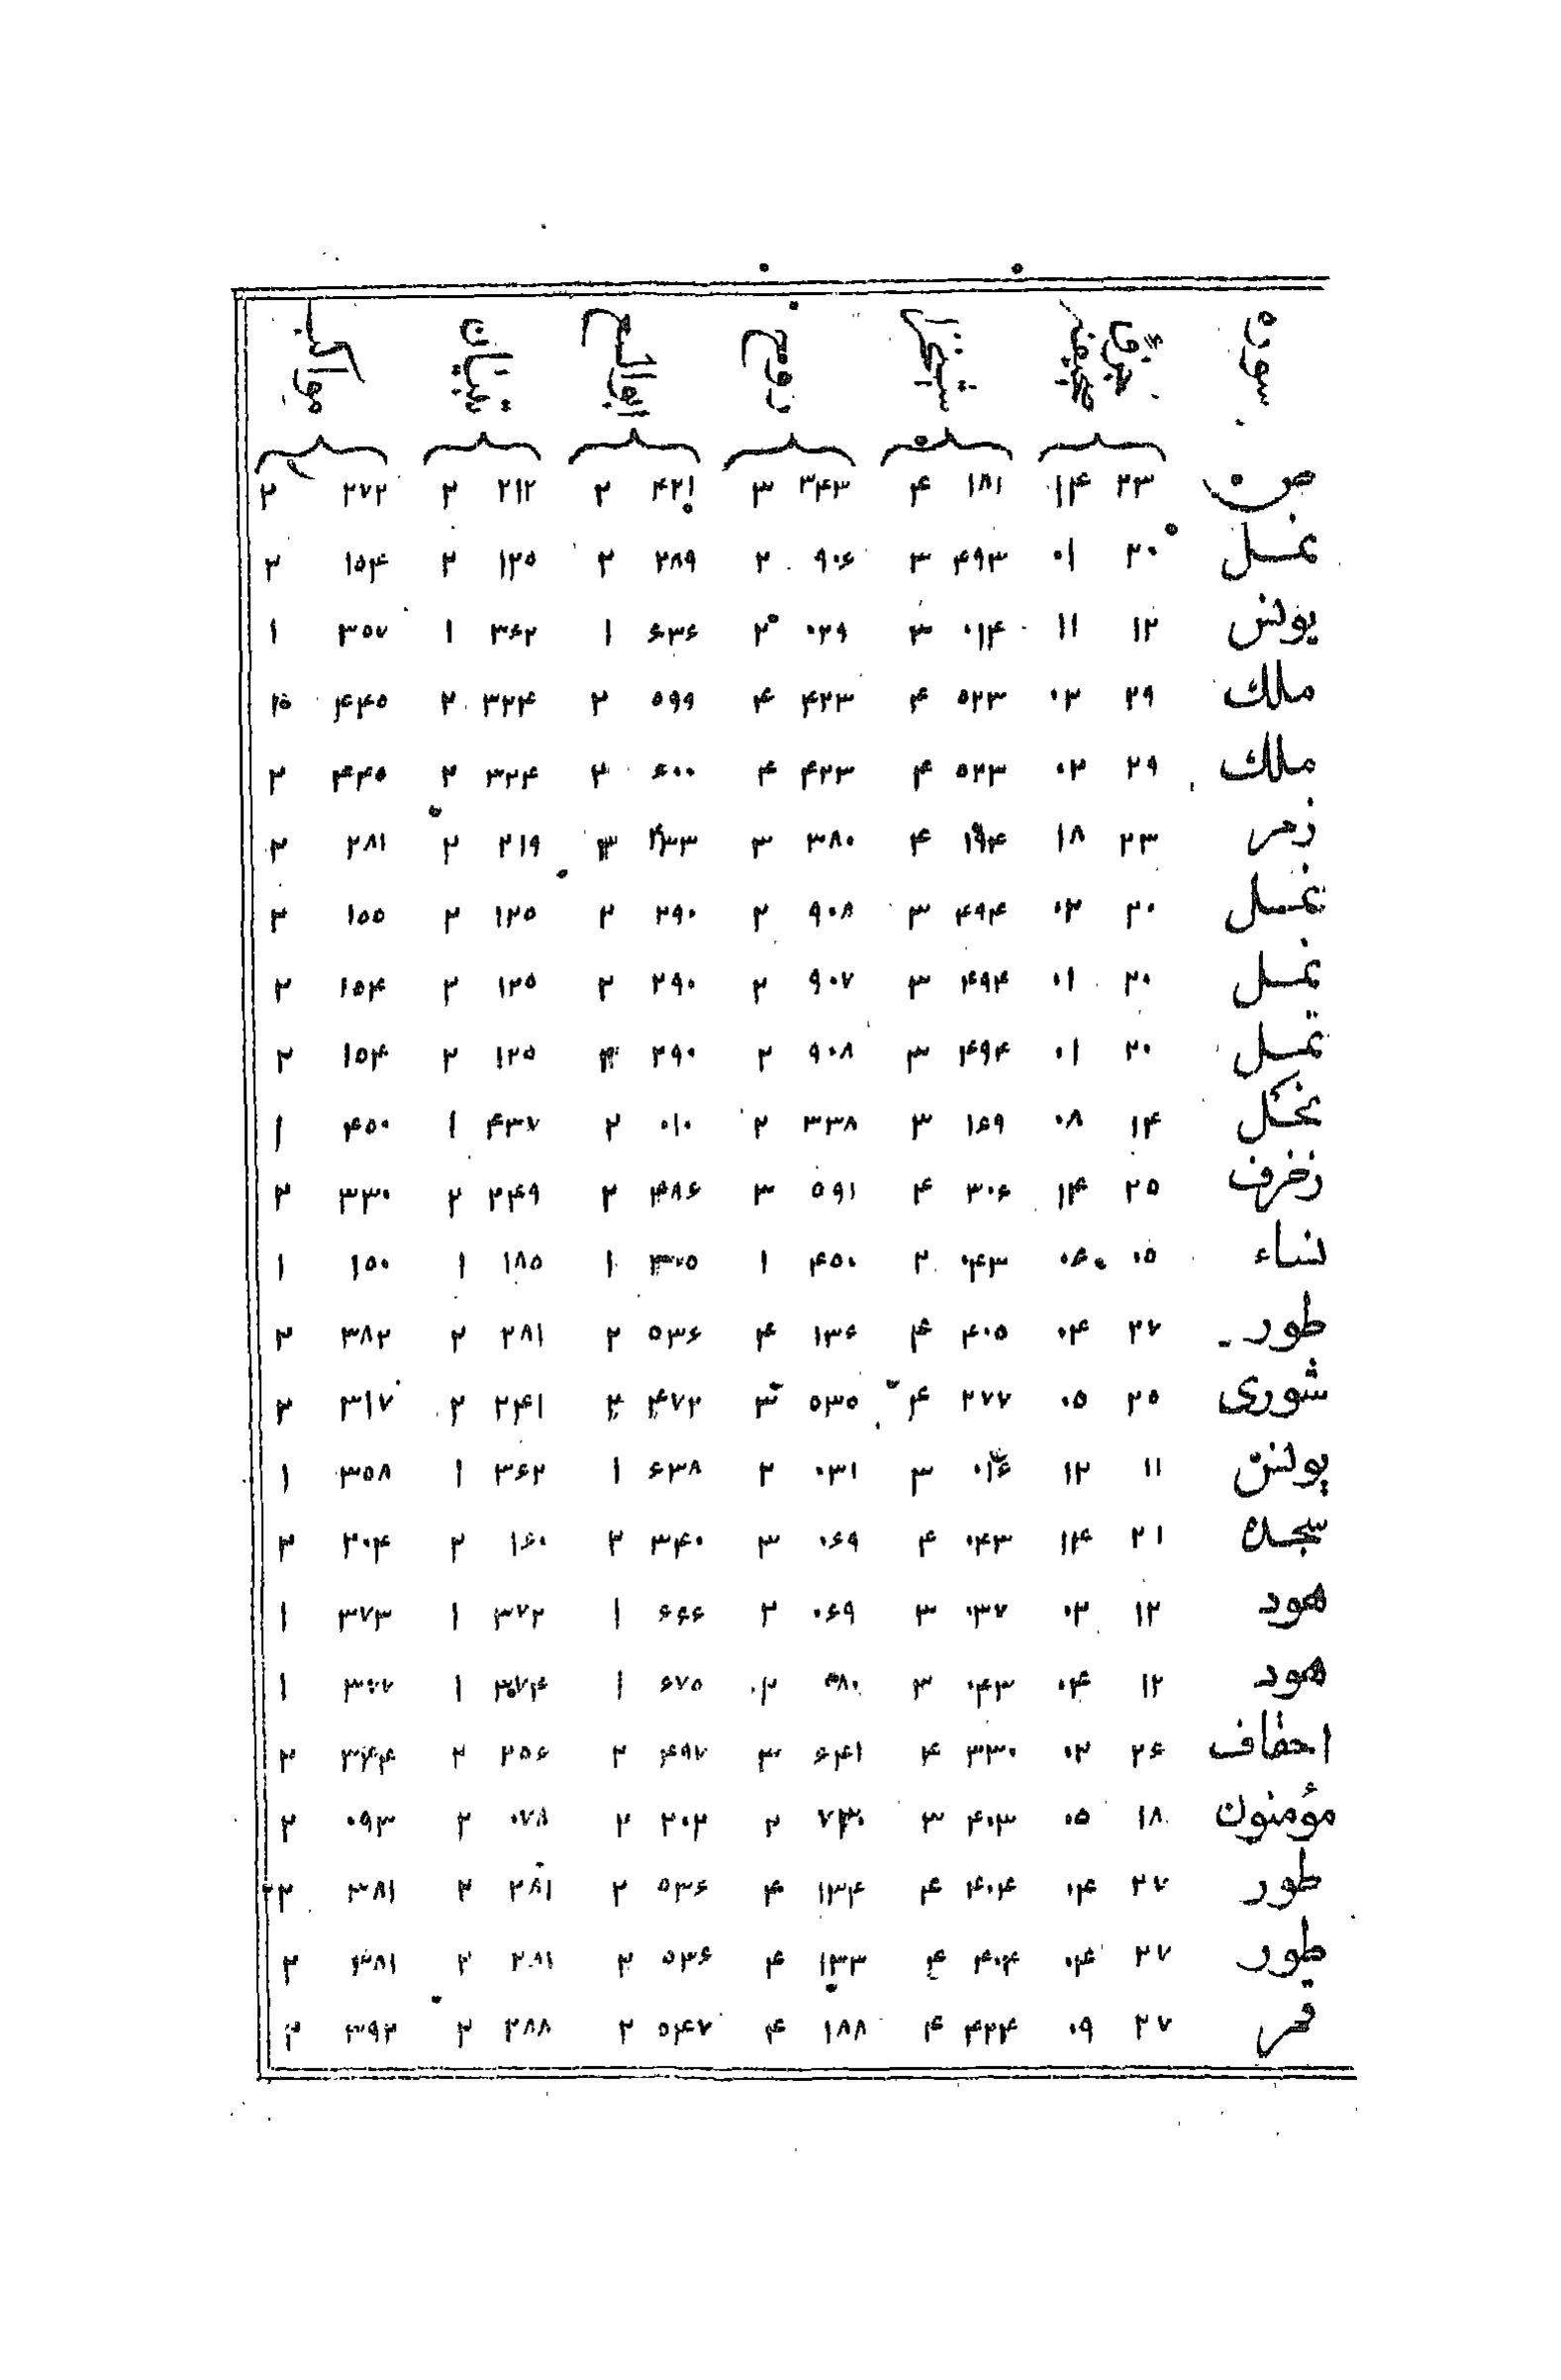 سوره
ص ۲۳ ۱۴ ۱۸۱ ۴ ۳۴۳ ۳ ۴۲۱ ۲ ۲۱۲ ۲ ۲۷۲ ۲
نمل ۲۰ ۰۱ ۴۹۳ ۳ ۹۰۶ ۲ ۲۸۹ ۲ ۱۲۵ ۲ ۱۵۴ ۲
یونس ۱۲ ۱۱ ۰۱۴ ۳ ۰۲۹ ۲ ۶۳۶ ۱ ۳۶۲ ۱ ۳۵۷ ۱
ملك ۲۹ ۰۲ ۵۲۳ ۴ ۴۲۳ ۴ ۵۹۹ ۲ ۳۲۴ ۲ ۴۴۵
ملك ۲۹ ۰۲ ۵۲۳ ۴ ۴۲۳ ۴ ۶۰۰ ۲ ۳۲۴ ۲ ۴۴۵ ۲
زمر ۲۳ ۱۸ ۱۹۴ ۴ ۳۸۰ ۳ ۴۳۳ ۲۱۹ ۲ ۲۸۱ ۲
نمل ۲۰ ۰۲ ۴۹۴ ۳ ۹۰۸ ۲ ۲۹۰ ۲ ۱۲۵ ۲ ۱۵۵ ۲
نمل ۲۰ ۰۱ ۴۹۴ ۳ ۹۰۷ ۲ ۲۹۰ ۲ ۱۲۵ ۲ ۱۵۴ ۲
نمل ۲۰ ۰۱ ۴۹۴ ۳ ۹۰۸ ۲ ۲۹۰ ۲ ۱۲۵ ۲ ۱۵۴ ۲
نحل ۱۴ ۰۸ ۱۶۹ ۳ ۳۳۸ ۲ ۰۱۰ ۲ ۴۳۷ ۱ ۴۵۰ ۱
زخرف ۲۵ ۱۴ ۳۰۶ ۴ ۵۹۱ ۳ ۴۸۶ ۲ ۲۴۹ ۲ ۳۳۰ ۲
نساء ۰۵ ۰۶ ۰۴۳ ۲ ۴۵۰ ۱ ۱ ۱۸۵ ۱ ۱۵۰ ۱
طور ۲۷ ۰۴ ۴۰۵ ۴ ۱۳۶ ۴ ۵۳۶ ۲ ۲۸۱ ۲ ۳۸۲ ۲
شوری ۲۵ ۰۵ ۲۷۷ ۴ ۵۳۵ ۳ ۴۷۲ ۲ ۲۴۱ ۲ ۳۱۷ ۲
یونس ۱۱ ۱۲ ۰۱۶ ۳ ۰۳۱ ۲ ۶۳۸ ۱ ۳۶۲ ۱ ۳۵۸ ۱
سجده ۲۱ ۱۴ ۰۴۳ ۴ ۰۶۹ ۳ ۳۴۰ ۲ ۱۶۰ ۲ ۲۰۴ ۲
هود ۱۲ ۰۲ ۰۳۷ ۳ ۰۶۹ ۲ ۶۶۶ ۱ ۳۷۲ ۱ ۳۷۳ ۱
هود ۱۲ ۰۴ ۰۴۳ ۳ ۲ ۶۷۵ ۱ ۳۷۴ ۱ ۳۷۷ ۱
احقاف ۲۶ ۰۲ ۳۳۰ ۴ ۶۴۱ ۳ ۴۹۷ ۲ ۲۵۶ ۲ ۳۴۴ ۲
مؤمنون ۱۸ ۰۵ ۴۰۳ ۳ ۷۳۰ ۲ ۲۰۲ ۲ ۰۷۸ ۲ ۰۹۳ ۲
طور ۲۷ ۰۴ ۴۰۴ ۴ ۱۳۴ ۴ ۵۳۶ ۲ ۲۸۱ ۲ ۳۸۱ ۲
طور ۲۷ ۰۴ ۴۰۴ ۴ ۱۳۳ ۴ ۵۳۶ ۲ ۲۸۱ ۲ ۳۸۱ ۲
قمر ۲۷ ۰۹ ۴۲۴ ۴ ۱۸۸ ۴ ۵۴۷ ۲ ۲۸۸ ۲ ۳۹۲ ۲